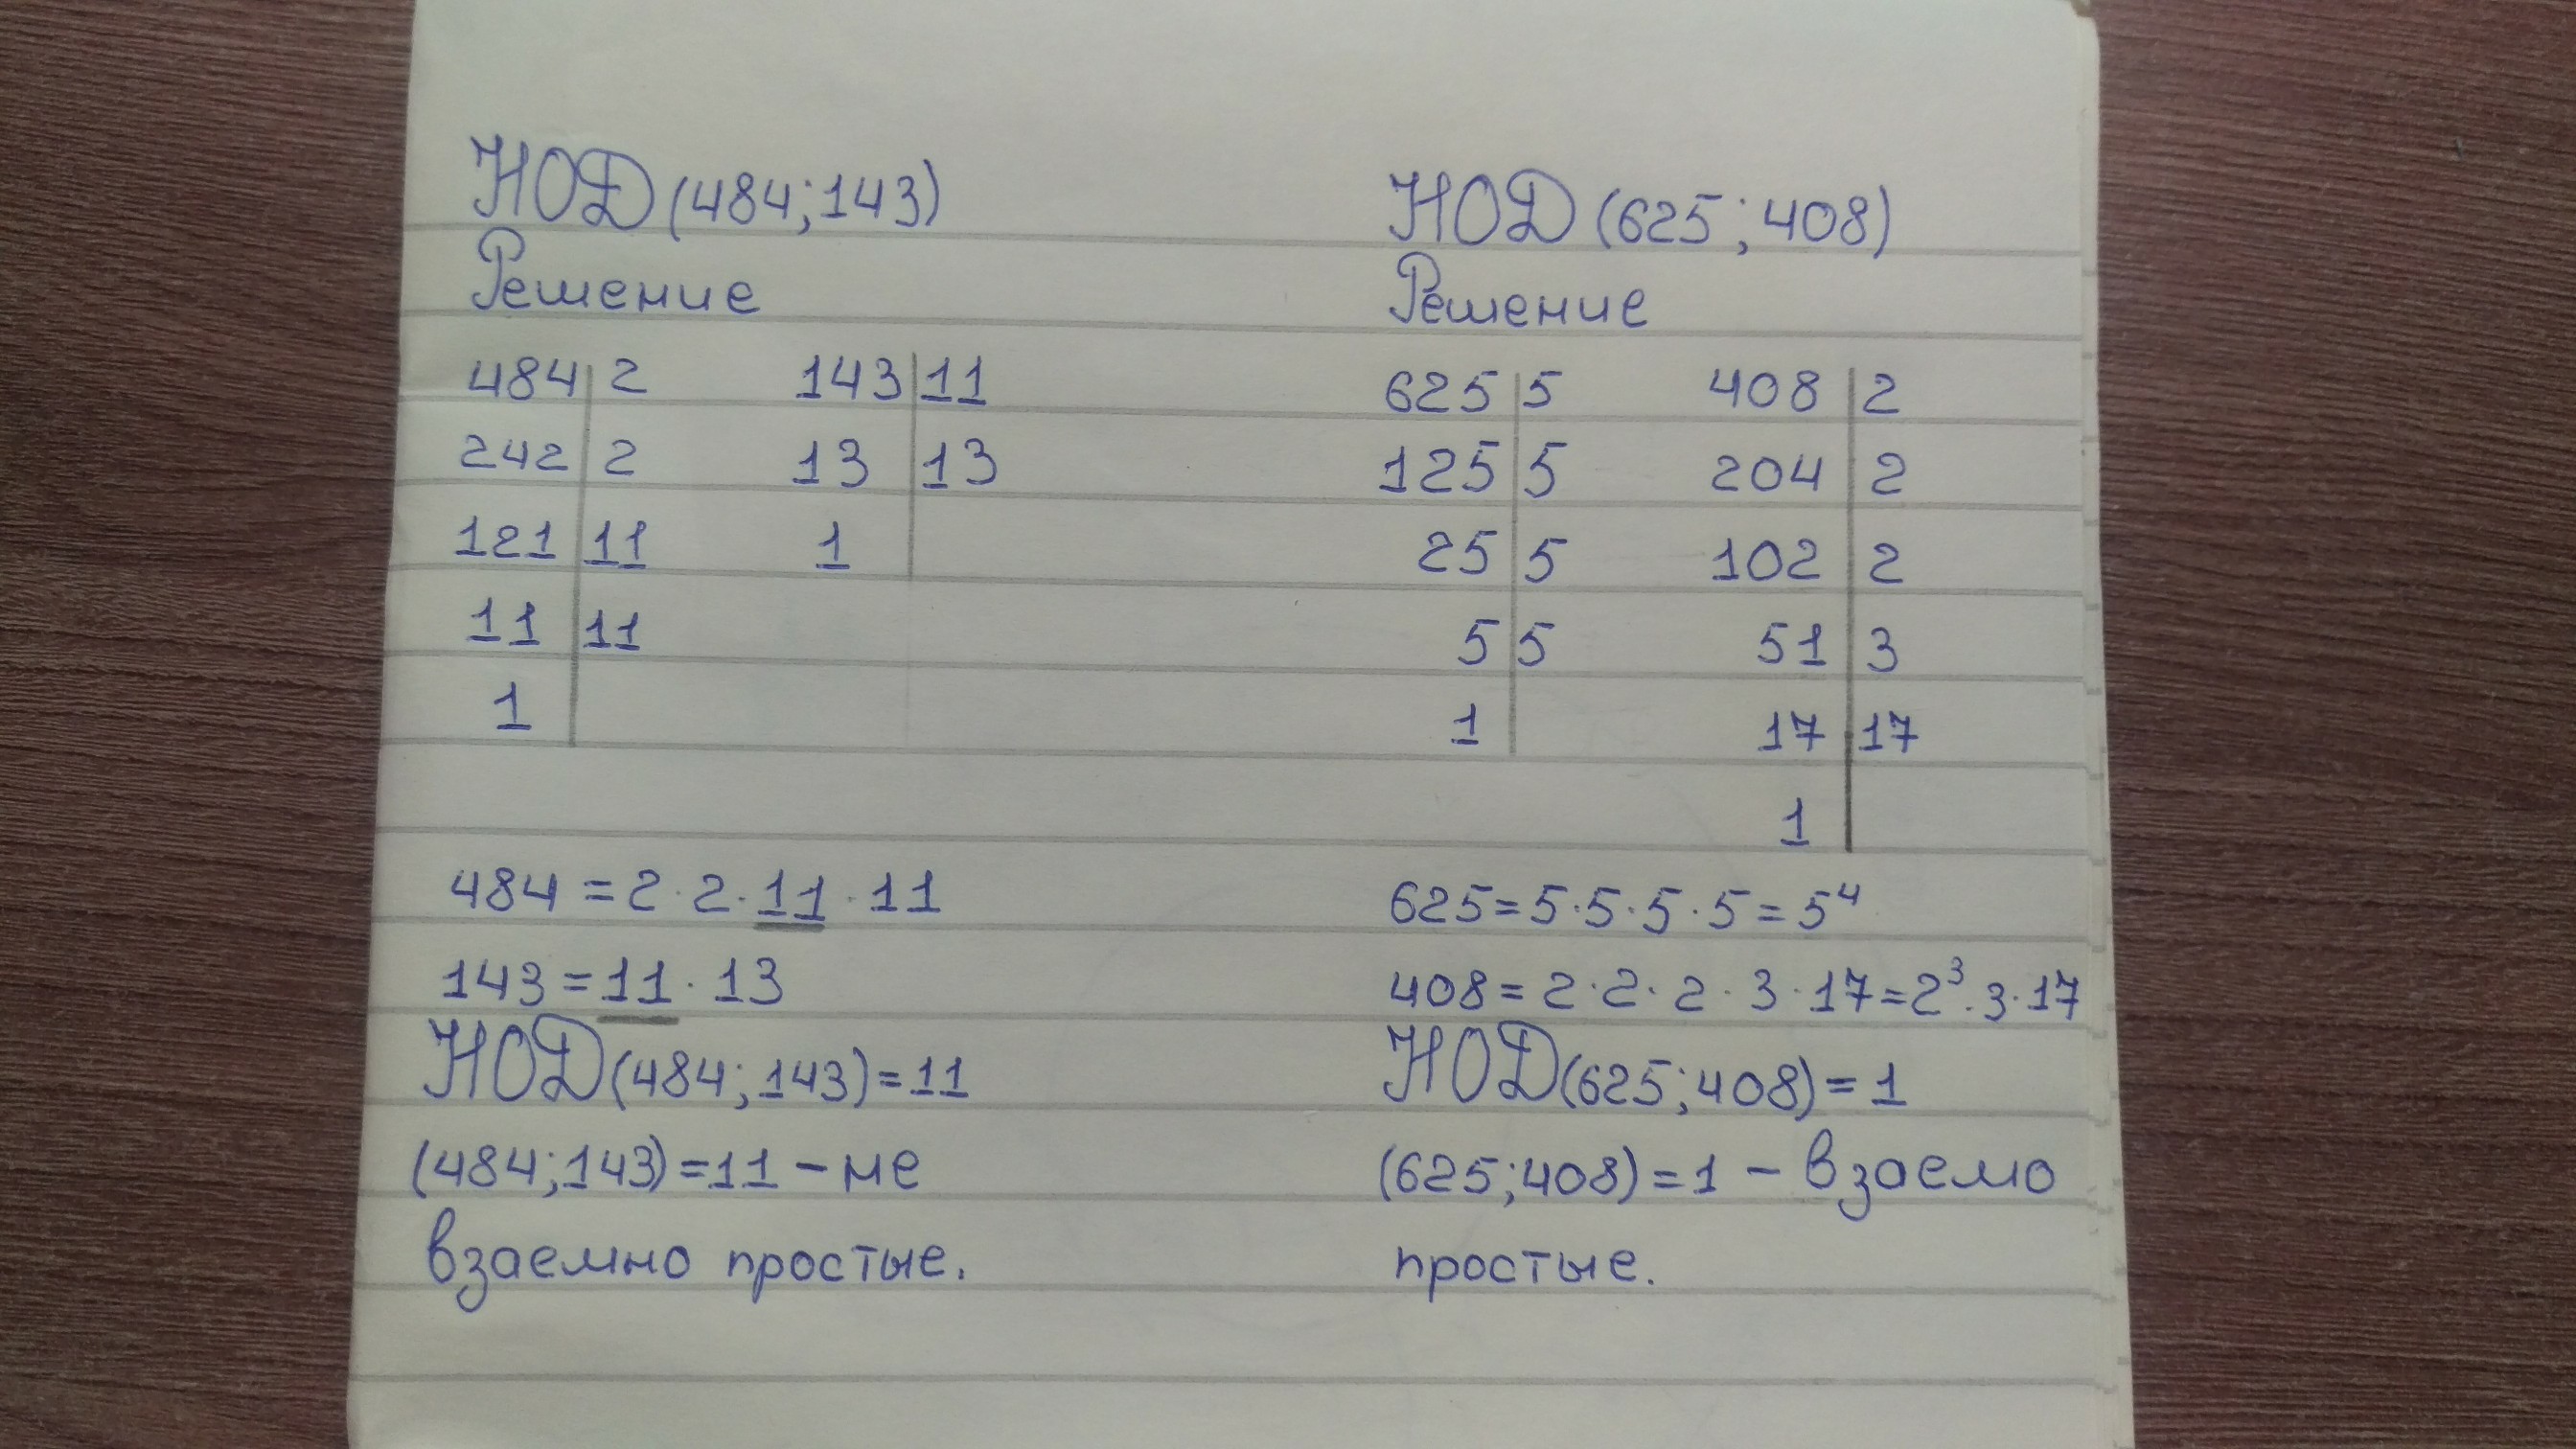 НОД (484; 143)
Решение
484 | 2
242 | 2
121 | 11
11 | 11
1
143 | 11
13 | 13
1
484 = 2 · 2 · 11 · 11
143 = 11 · 13
НОД (484; 143) = 11
(484; 143) = 11 – не
взаемно простые.
НОД (625; 408)
Решение
625 | 5
125 | 5
25 | 5
5 | 5
1
408 | 2
204 | 2
102 | 2
51 | 3
17 | 17
1
625 = 5 · 5 · 5 · 5 = 5⁴
408 = 2 · 2 · 2 · 3 · 17 = 2³ · 3 · 17
НОД (625; 408) = 1
(625; 408) = 1 – взаемо
простые.